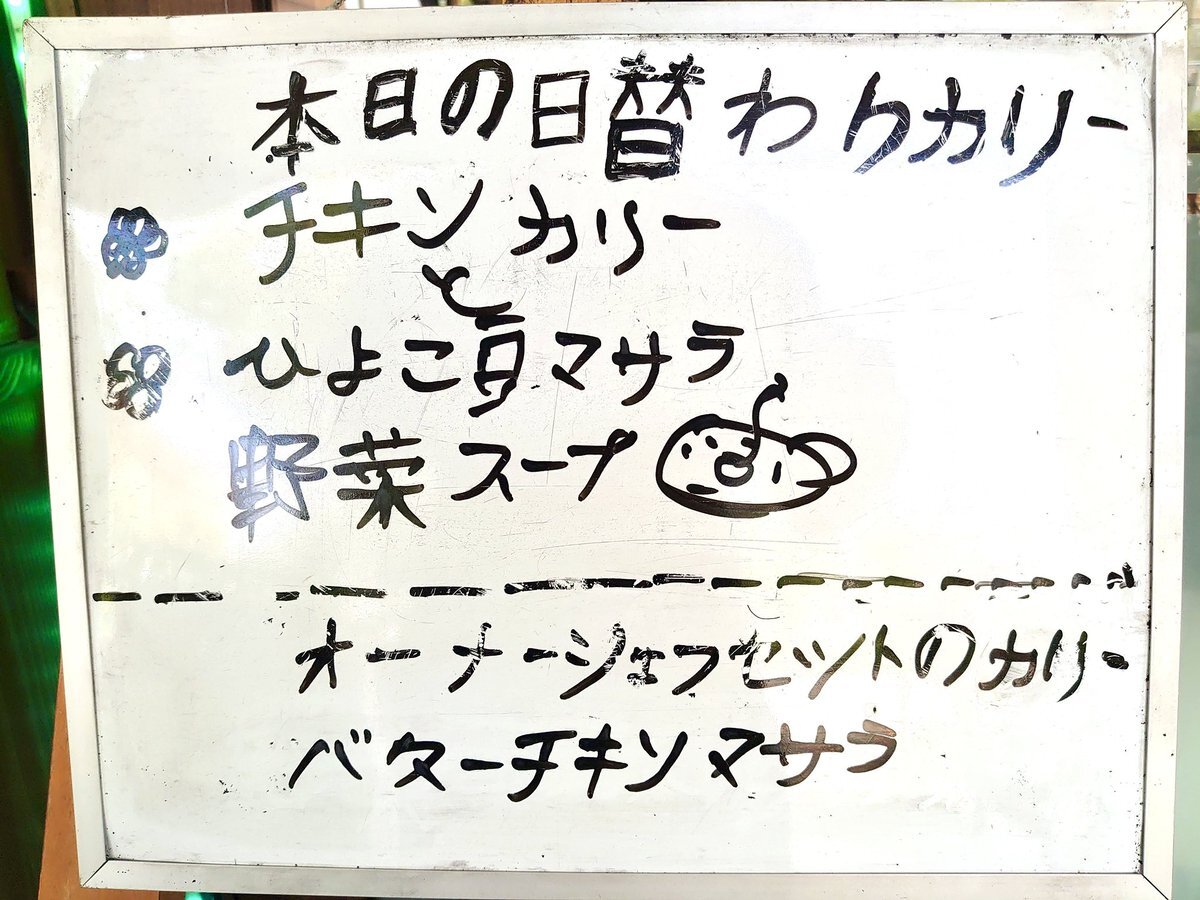 本日の日替わりカリー
チキンカリー
と
ひよこ豆マサラ
野菜スープ
オーナーシェフセットのカリー
バターチキンマサラ